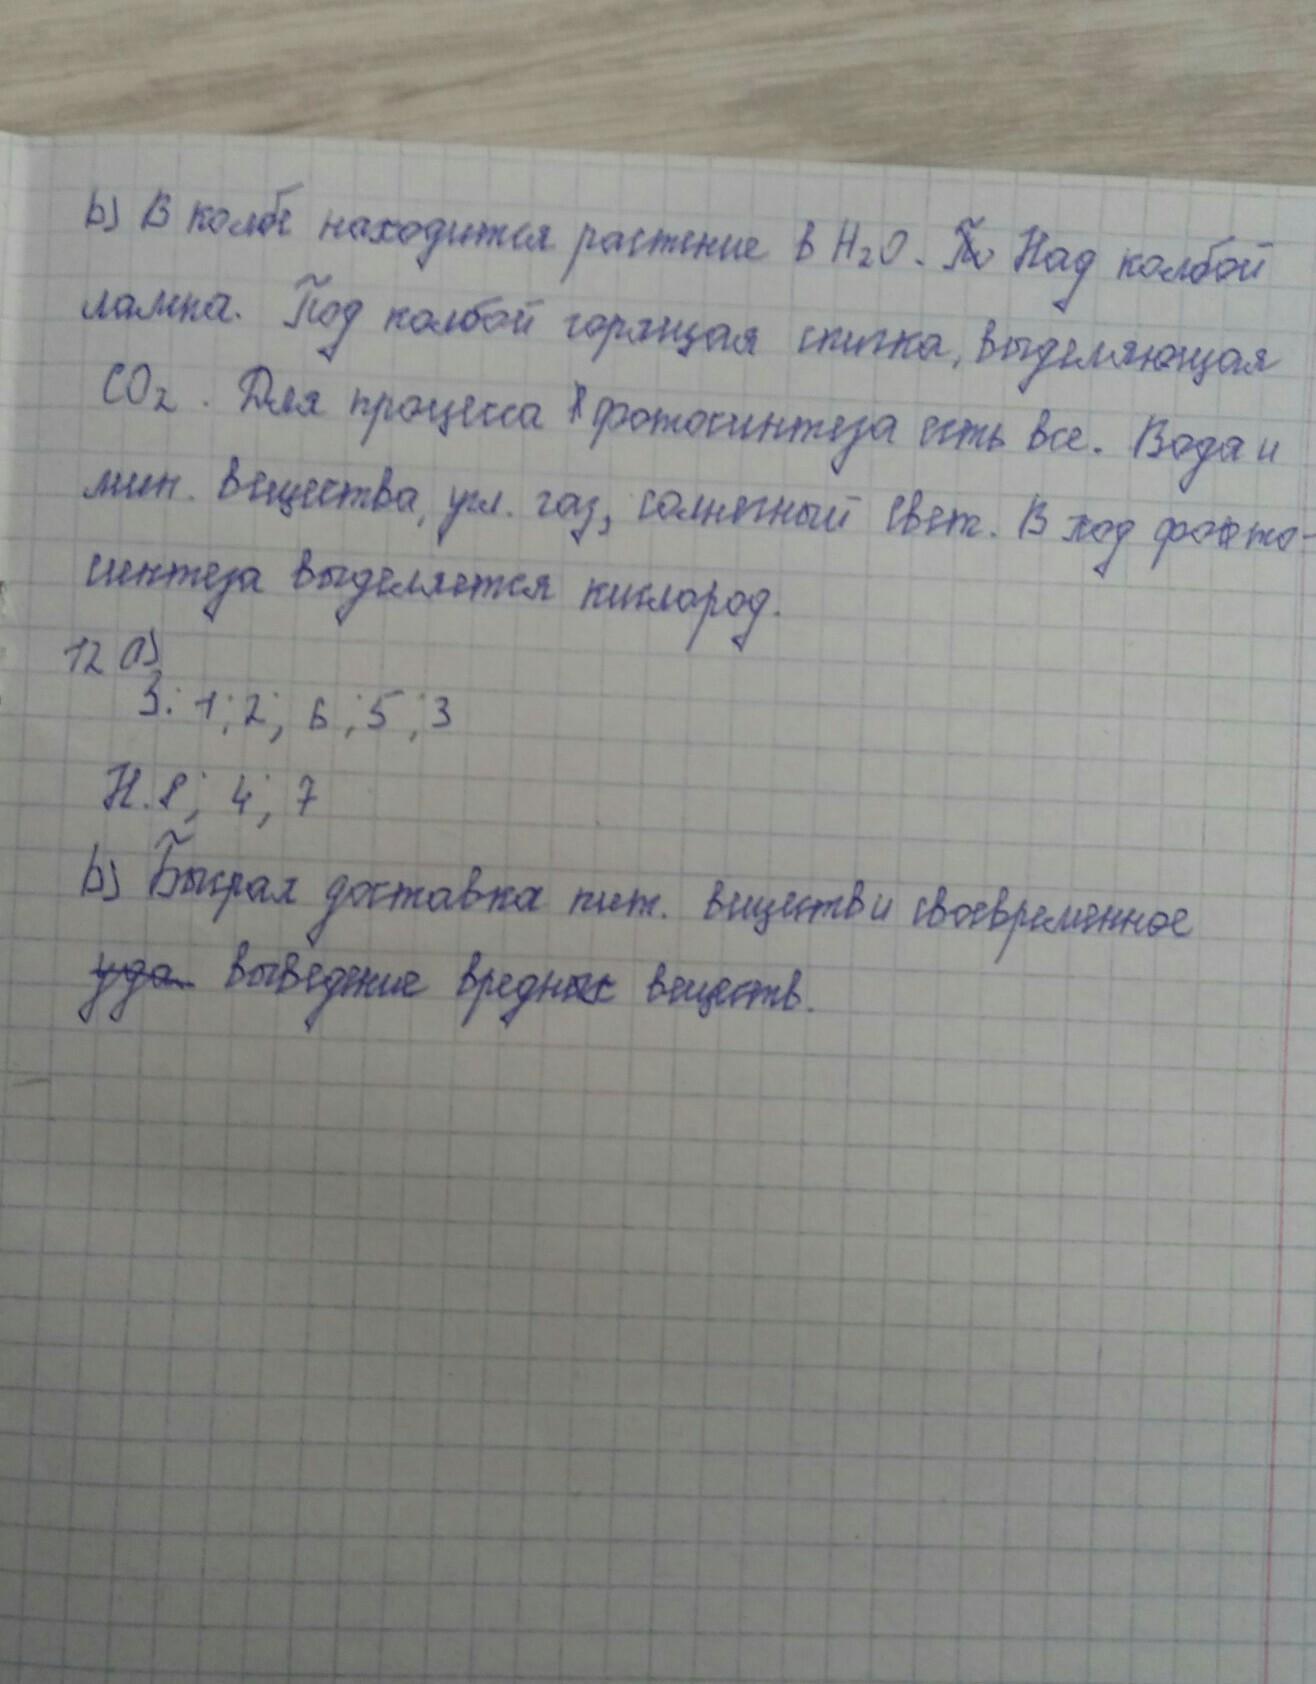 b) В колбе находится растение в H₂O. Над колбой
лампа. Под колбой горящая спичка, выделяющая
CO₂. Для процесса фотосинтеза есть все. Вода и
мин. вещества, угл. газ, солнечный свет. В ход фото-
синтеза выделяется кислород.
12 a)
З: 1; 2; 6; 5; 3
Н. 8; 4; 7
b) Быстрая доставка пит. веществ и своевременное
уда выведение вредных веществ.